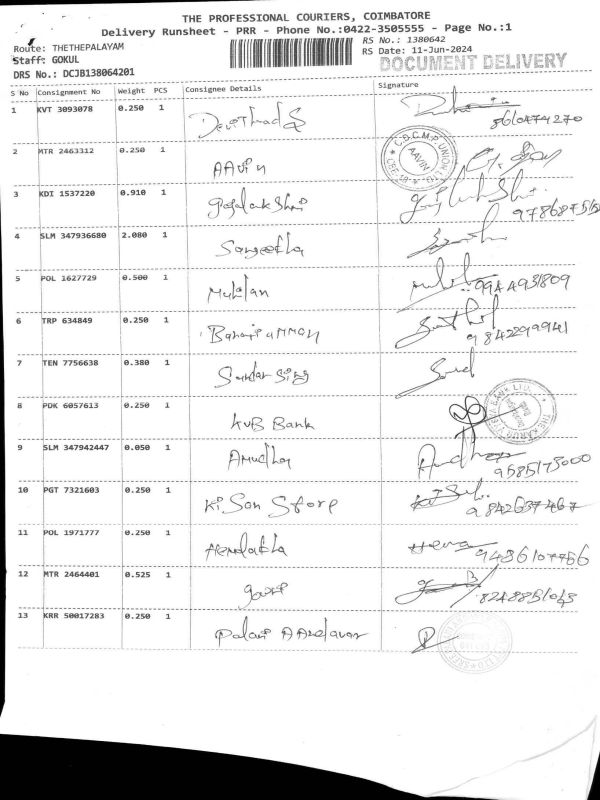 THE PROFESSIONAL COURIERS, COIMBATORE
Delivery Runsheet - PRR - Phone No.:0422-3505555 - Page No.:1
Route: THETHEPALAYAM
RS No.: 1380642
Staff: GOKUL
RS Date: 11-Jun-2024
DOCUMENT DELIVERY
DRS No.: DCJB138064201
S No Consignment No Weight PCS Consignee Details Signature
1 KVT 3093078 0.250 1
8610474270
2 MTR 2463312 0.250 1 AAvin
C.D.C.M.P UNION LTD
AAVIN
3 KDI 1537220 0.910 1
4 SLM 347936680 2.080 1 Sangeetha
5 POL 1627729 0.500 1 Mukilan 9944931809
6 TRP 634849 0.250 1
9842299941
7 TEN 7756638 0.380 1 Sundar Sing
8 PDK 6057613 0.250 1 KVB Bank
9 SLM 347942447 0.050 1 Amudha
9585173000
10 PGT 7321603 0.250 1 Ki San Store
9842637467
11 POL 1971777 0.250 1 Hemalatha Hema
9486107756
12 MTR 2464401 0.525 1 gowri
13 KRR 50017283 0.250 1